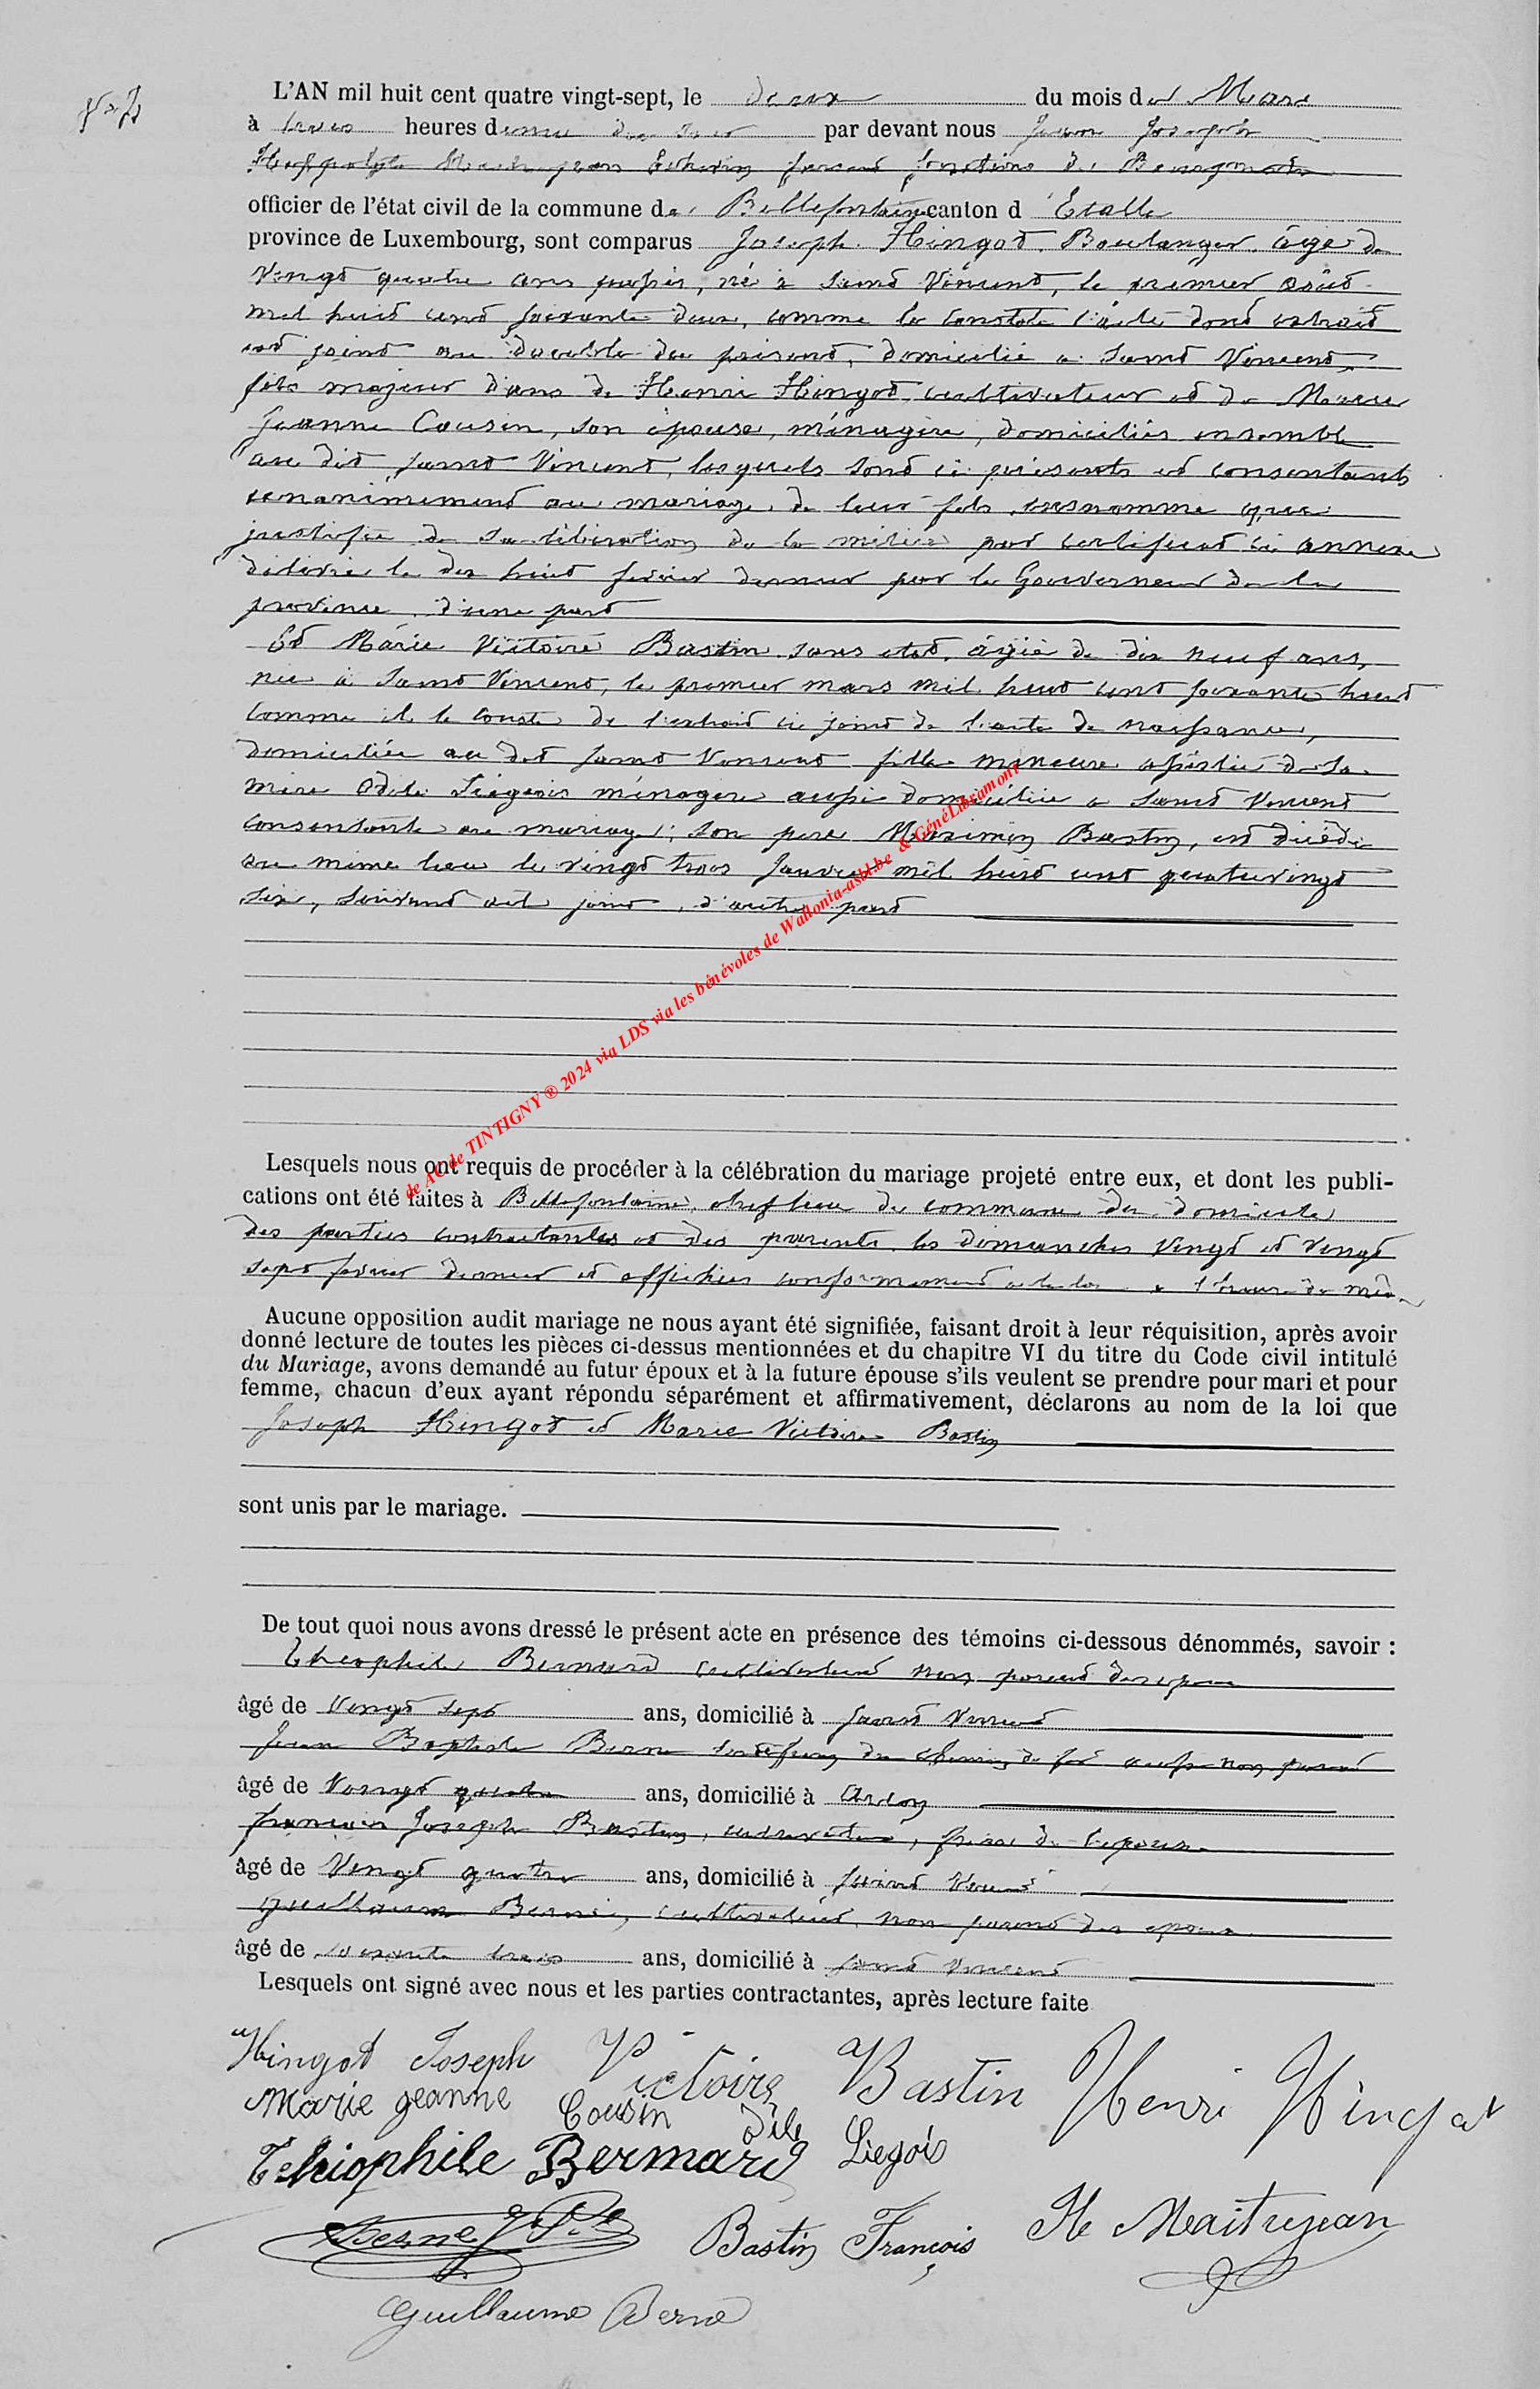 L'AN mil huit cent quatre vingt-sept, le deux du mois de Mars
à trois heures demie du soir par devant nous Jean Joseph
Hippolyte Maitrejean Echevin faisant fonctions de Bourgmestre
officier de l'état civil de la commune de Bellefontaine canton d'Etalle
province de Luxembourg, sont comparus Joseph Hingot, Boulanger, âgé de
Vingt quatre ans passés, né à Saint Vincent, le premier août
mil huit cent soixante deux, comme le constate l'acte dont extrait
est joint au double du présent, domicilié à Saint Vincent,
fils majeur d'ans de Henri Hingot, cultivateur et de Marie
Jeanne Cousin, son épouse, ménagère, domiciliés ensemble
au dit Saint Vincent, lesquels sont ici présents et consentants
unanimement au mariage de leur fils susnommé qui
justifie de sa libération de la milice par certificat ci annexé
délivré le dix huit février dernier par le Gouverneur de la
province, d'une part
Et Marie Victoire Bastin sans état, âgée de dix neuf ans,
née à Saint Vincent, le premier mars mil huit cent soixante huit
comme il le conste de l'extrait ci joint de l'acte de naissance,
domiciliée au dit Saint Vincent fille mineure assistée de sa
mère Odile Liégeois ménagère aussi domiciliée à Saint Vincent
consentante au mariage; son père Maximin Bastin, est décédé
au même lieu le vingt trois Janvier mil huit cent quatrevingt
six, suivant acte joint, d'autre part
de AC de TINTIGNY ® 2024 via LDS via les bénévoles de Wallonia-asbl.be & GénéLibramont
Lesquels nous ont requis de procéder à la célébration du mariage projeté entre eux, et dont les publi-
cations ont été faites à Bellefontaine, chef lieu de commune du domicile
des parties contractantes et des parents les dimanches vingt et vingt
sept février dernier et affichées conformément à la loi à l'heure de midi
Aucune opposition audit mariage ne nous ayant été signifiée, faisant droit à leur réquisition, après avoir
donné lecture de toutes les pièces ci-dessus mentionnées et du chapitre VI du titre du Code civil intitulé
du Mariage, avons demandé au futur époux et à la future épouse s'ils veulent se prendre pour mari et pour
femme, chacun d'eux ayant répondu séparément et affirmativement, déclarons au nom de la loi que
Joseph Hingot et Marie Victoire Bastin
sont unis par le mariage.
De tout quoi nous avons dressé le présent acte en présence des témoins ci-dessous dénommés, savoir :
Théophile Bernard cultivateur non parent des époux
âgé de Vingt sept ans, domicilié à Saint Vincent
Jean Baptiste Berne du chemin de fer aussi non parent
âgé de Vingt quatre ans, domicilié à Arlon
François Joseph Bastin, cultivateur, frère de l'épouse
âgé de Vingt quatre ans, domicilié à Saint Vincent
Guillaume Berne, cultivateur, non parent des époux
âgé de soixante trois ans, domicilié à Saint Vincent
Lesquels ont signé avec nous et les parties contractantes, après lecture faite
Hingot Joseph Victoire Bastin Henri Hingot
Marie jeanne Cousin Odile Liegois
Théophile Bernard
Berne J Bte Bastin François H Maitrejean
Guillaume Berne